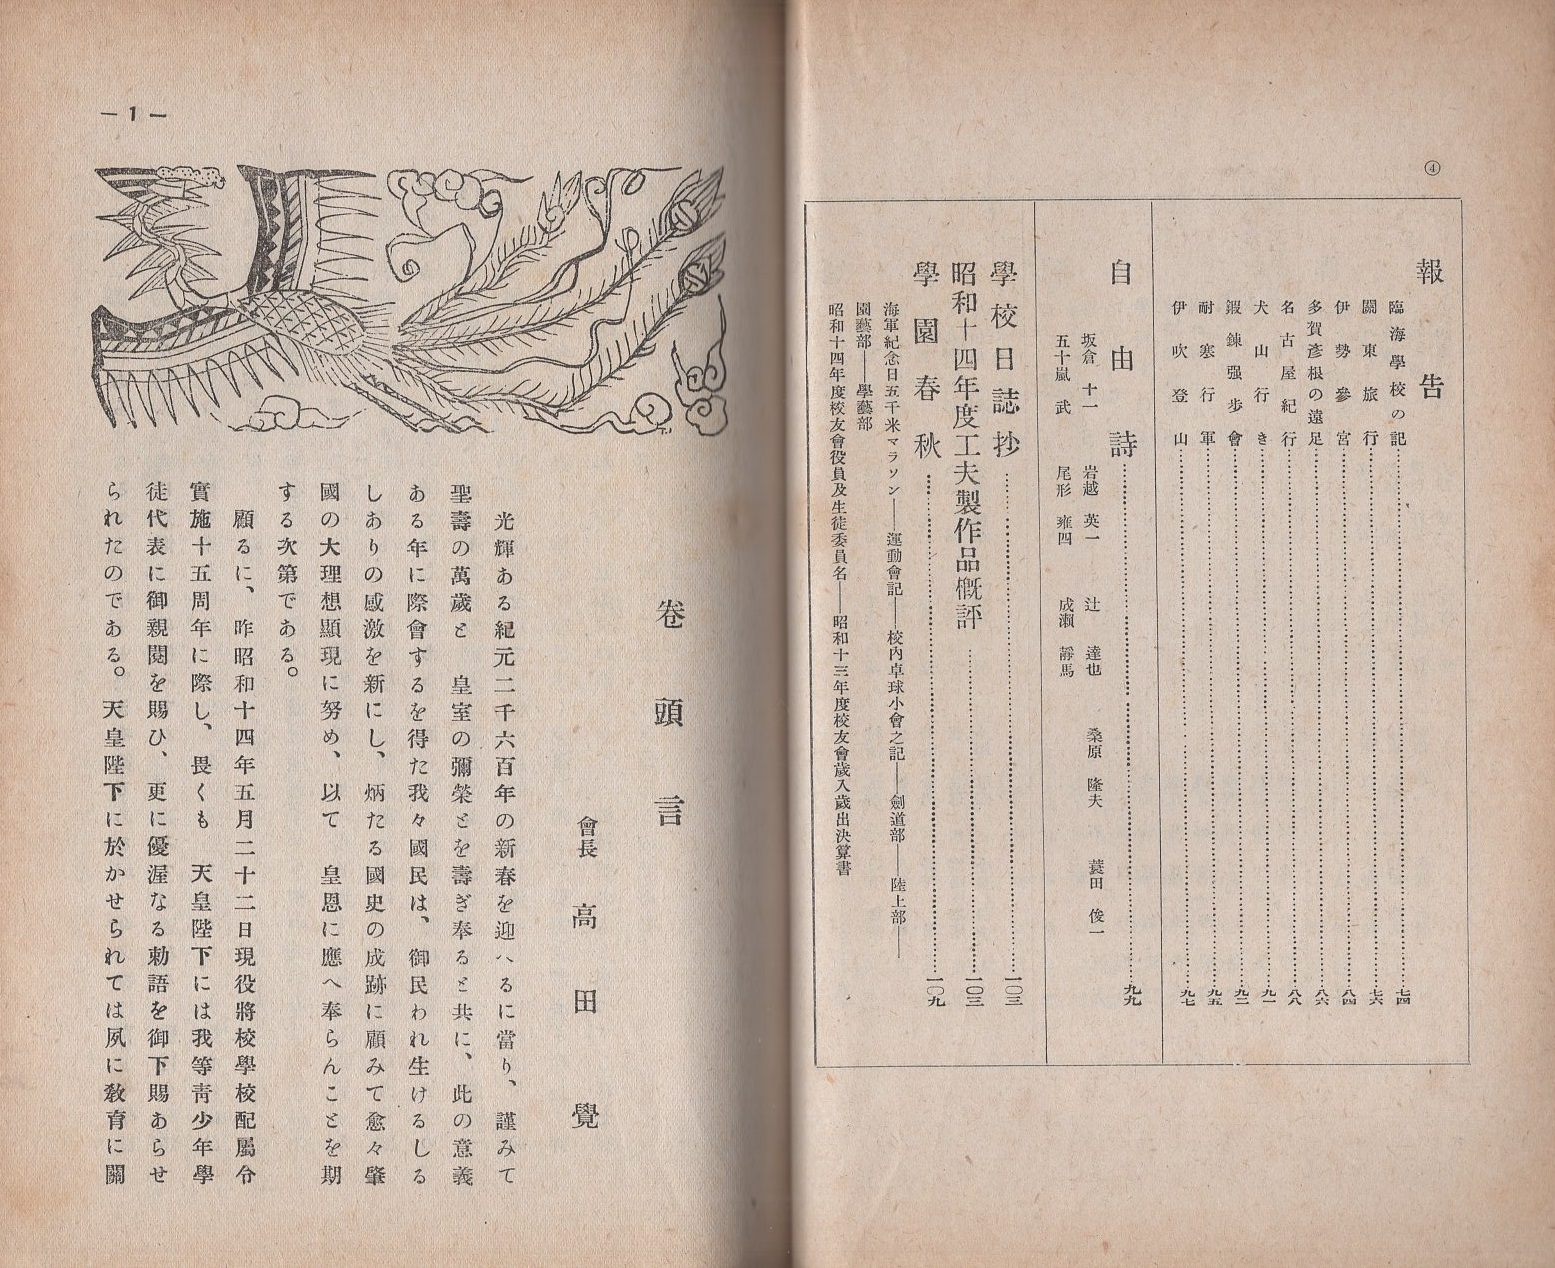 ④
報告
臨海學校の記 七四
關東旅行 七六
伊勢參宮 八四
多賀彥根の遠足 八六
名古屋紀行 八八
犬山行き 九一
鍛鍊强步會 九二
耐寒行軍 九五
伊吹登山 九七
自由詩 九九
坂倉十一 岩越英一 辻達也 桑原隆夫 蓑田俊一
五十嵐武 尾形雍四 成瀨靜馬
學校日誌抄 一〇三
昭和十四年度工夫製作品槪評 一〇三
學園春秋 一〇九
海軍紀念日五千米マラソン——運動會記——校內卓球小會之記——劍道部——陸上部——
園藝部——學藝部
昭和十四年度校友會役員及生徒委員名——昭和十三年度校友會歲入歲出決算書
— 1 —
卷頭言
會長 高田覺
光輝ある紀元二千六百年の新春を迎へるに當り、謹みて
聖壽の萬歲と 皇室の彌榮とを壽ぎ奉ると共に、此の意義
ある年に際會するを得た我々國民は、御民われ生けるしる
しありの感激を新にし、炳たる國史の成跡に顧みて愈々肇
國の大理想顯現に努め、以て 皇恩に應へ奉らんことを期
する次第である。
顧るに、昨昭和十四年五月二十二日現役將校學校配屬令
實施十五周年に際し、畏くも 天皇陛下には我等靑少年學
徒代表に御親閱を賜ひ、更に優渥なる勅語を御下賜あらせ
られたのである。天皇陛下に於かせられては夙に敎育に關